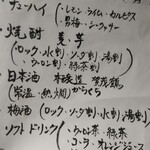 ・チューハイ (・レモン・ライム・カルピス
・巨峰・シークヮーサー
・焼酎 麦・芋
(ロック・水割・ソーダ割・湯割)
(ウーロン割・緑茶割)
・日本酒 本醸造 賀茂鶴
(常温・熱・燗) からくち
・梅酒 (ロック・ソーダ割・水割・湯割)
ソフトドリンク ・ウーロン茶・緑茶
・コーラ・オレンジジュース